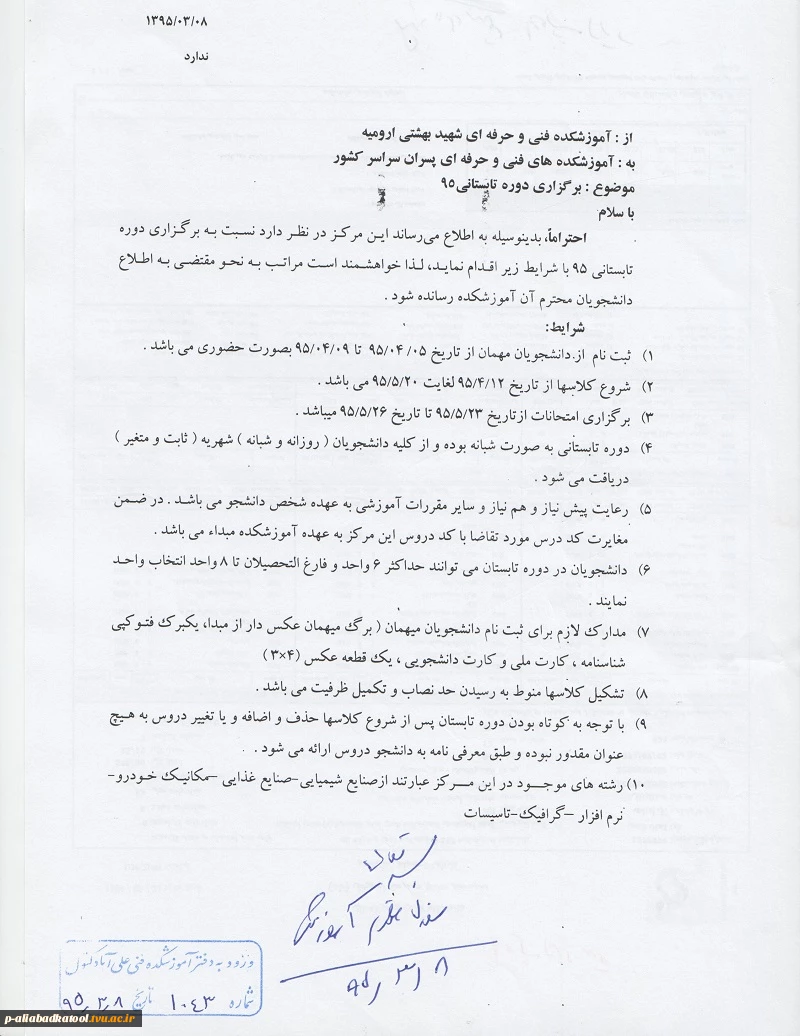 ۱۳۹۵/۰۳/۰۸
ندارد
از : آموزشکده فنی و حرفه ای شهید بهشتی ارومیه
به : آموزشکده های فنی و حرفه ای پسران سراسر کشور
موضوع : برگزاری دوره تابستانی۹۵
با سلام
احتراماً، بدینوسیله به اطلاع می‌رساند این مرکز در نظر دارد نسبت به برگزاری دوره
تابستانی ۹۵ با شرایط زیر اقدام نماید، لذا خواهشمند است مراتب به نحو مقتضی به اطلاع
دانشجویان محترم آن آموزشکده رسانده شود .
شرایط:
۱) ثبت نام از دانشجویان مهمان از تاریخ ۹۵/۰۴/۰۵ تا ۹۵/۰۴/۰۹ بصورت حضوری می باشد .
۲) شروع کلاسها از تاریخ ۹۵/۴/۱۲ لغایت ۹۵/۵/۲۰ می باشد .
۳) برگزاری امتحانات ازتاریخ ۹۵/۵/۲۳ تا تاریخ ۹۵/۵/۲۶ میباشد .
۴) دوره تابستانی به صورت شبانه بوده و از کلیه دانشجویان ( روزانه و شبانه ) شهریه ( ثابت و متغیر )
دریافت می شود .
۵) رعایت پیش نیاز و هم نیاز و سایر مقررات آموزشی به عهده شخص دانشجو می باشد . در ضمن
مغایرت کد درس مورد تقاضا با کد دروس این مرکز به عهده آموزشکده مبداء می باشد .
۶) دانشجویان در دوره تابستان می توانند حداکثر ۶ واحد و فارغ التحصیلان تا ۸ واحد انتخاب واحد
نمایند .
۷) مدارک لازم برای ثبت نام دانشجویان میهمان ( برگ میهمان عکس دار از مبدا، یکبرک فتوکپی
شناسنامه ، کارت ملی و کارت دانشجویی ، یک قطعه عکس (۴×۳ )
۸) تشکیل کلاسها منوط به رسیدن حد نصاب و تکمیل ظرفیت می باشد .
۹) با توجه به کوتاه بودن دوره تابستان پس از شروع کلاسها حذف و اضافه و یا تغییر دروس به هیچ
عنوان مقدور نبوده و طبق معرفی نامه به دانشجو دروس ارائه می شود .
۱۰) رشته های موجود در این مرکز عبارتند ازصنایع شیمیایی-صنایع غذایی -مکانیک خودرو-
نرم افزار -گرافیک-تاسیسات
۹۵/۳/۸
ورود به دفتر آموزشکده فنی علی آباد کتول
شماره ۱۰۴۳ تاریخ ۹۵/۳/۸
p-aliabadkatool.tvu.ac.ir